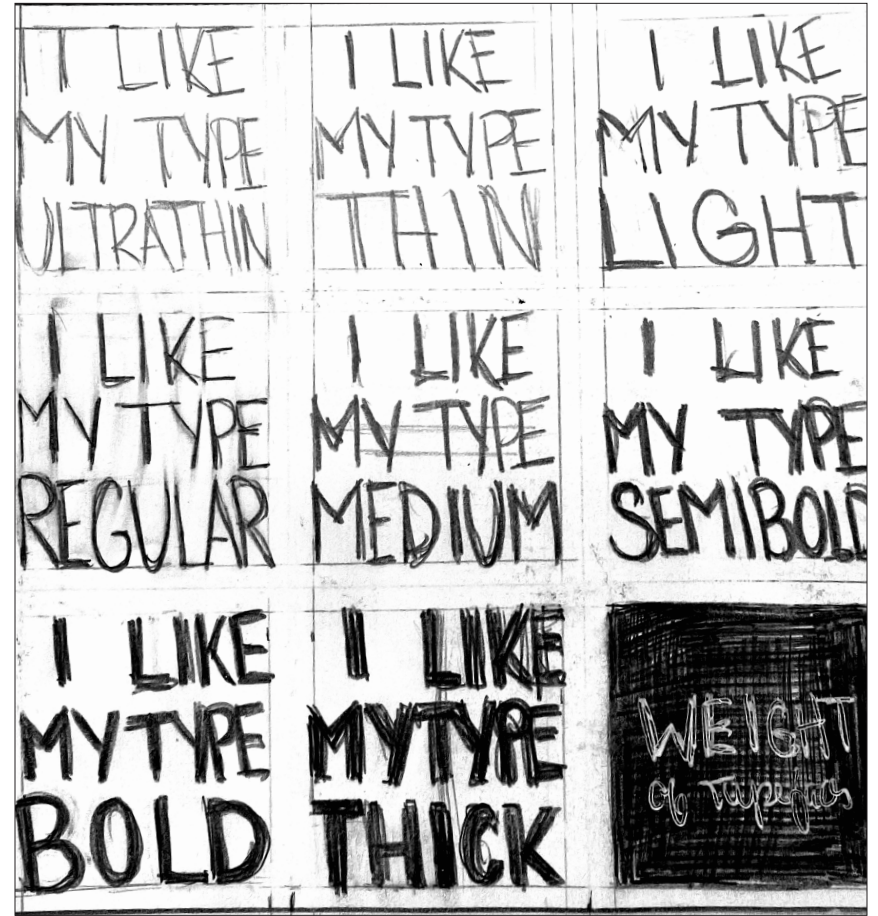 IT LIKE
MY TYPE
ULTRATHIN
I LIKE
MY TYPE
THIN
I LIKE
MY TYPE
LIGHT
I LIKE
MY TYPE
REGULAR
I LIKE
MY TYPE
MEDIUM
I LIKE
MY TYPE
SEMIBOLD
I LIKE
MY TYPE
BOLD
I LIKE
MY TYPE
THICK
WEIGHT
of